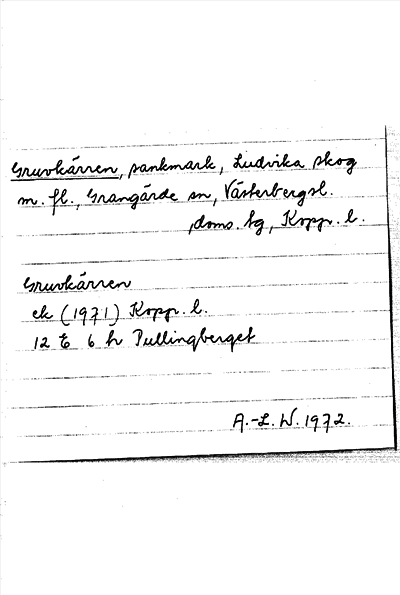 Gruvkärren, sankmark, Ludvika skog
m. fl., Grangärde sn, Västerbergsl.
doms. tg, Kopp. l.
Gruvkärren
ek (1971) Kopp. l.
12 E 6 h Pullingberget
A.-L. W. 1972.